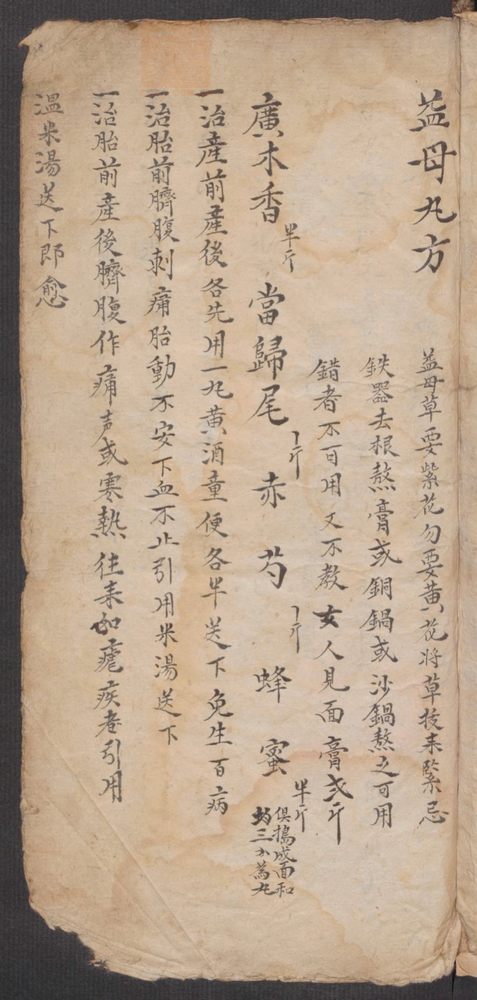 益母丸方
益母草要紫花勿要黃花將草拔来緊忌
鉄器去根熬膏或銅鍋或沙鍋熬之可用
錯者不可用又不教女人見面膏弍斤
廣木香半斤 當歸尾一斤 赤芍一斤 蜂蜜半斤
俱搗成面和
均三小為丸
一治產前產後各先用一丸黃酒童便各半送下免生百病
一治胎前臍腹刺痛胎動不安下血不止引用米湯送下
一治胎前產後臍腹作痛声或寒熱往来如瘧疾者引用
溫米湯送下即愈